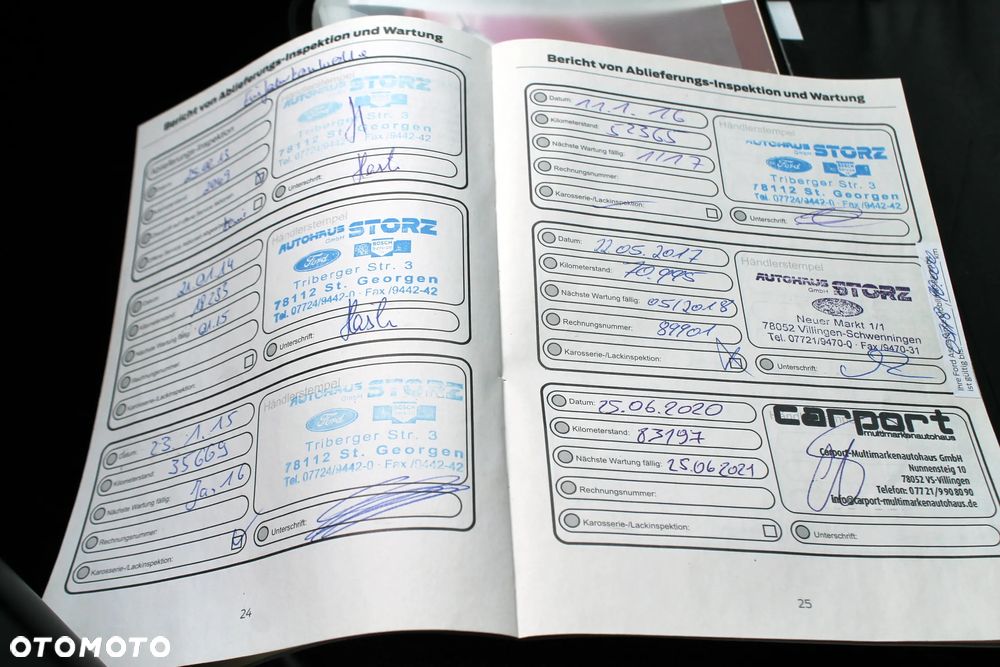 Bericht von Ablieferungs-Inspektion und Wartung
Händlerstempel
AUTOHAUS STORZ
GmbH
Triberger Str. 3
78112 St. Georgen
Tel. 07724/9442-0 · Fax /9442-42
Unterschrift:
21.01.14
01.15
Händlerstempel
AUTOHAUS STORZ
GmbH
Ford
BOSCH
Triberger Str. 3
78112 St. Georgen
Tel. 07724/9442-0 · Fax /9442-42
Rechnungsnummer:
Unterschrift:
Karosserie-/Lackinspektion:
Datum: 23.1.15
Kilometerstand: 35669
Nächste Wartung fällig: Ja, 16
Rechnungsnummer:
Karosserie-/Lackinspektion:
Händlerstempel
AUTOHAUS STORZ
GmbH
Ford
BOSCH
Triberger Str. 3
78112 St. Georgen
Tel. 07724/9442-0 · Fax /9442-42
Unterschrift:
24
Bericht von Ablieferungs-Inspektion und Wartung
Datum: 11.1.16
Kilometerstand: 52365
Nächste Wartung fällig: 1/17
Rechnungsnummer:
Karosserie-/Lackinspektion:
Händlerstempel
AUTOHAUS STORZ
GmbH
Ford
BOSCH
Triberger Str. 3
78112 St. Georgen
Tel. 07724/9442-0 · Fax /9442-42
Unterschrift:
Datum: 22.05.2017
Kilometerstand: 70.995
Nächste Wartung fällig: 05/2018
Rechnungsnummer: 89901
Karosserie-/Lackinspektion:
Händlerstempel
AUTOHAUS STORZ
GmbH
Neuer Markt 1/1
78052 Villingen-Schwenningen
Tel. 07721/9470-0 · Fax /9470-31
Unterschrift:
Ihre Ford
ist gültig bis
Datum: 25.06.2020
Kilometerstand: 83197
Nächste Wartung fällig: 25.06.2021
Rechnungsnummer:
Karosserie-/Lackinspektion:
carport
multimarkenautohaus
Carport-Multimarkenautohaus GmbH
Nunnensteig 10
78052 VS-Villingen
Telefon: 07721/9908090
info@carport-multimarkenautohaus.de
Unterschrift:
25
OTOMOTO